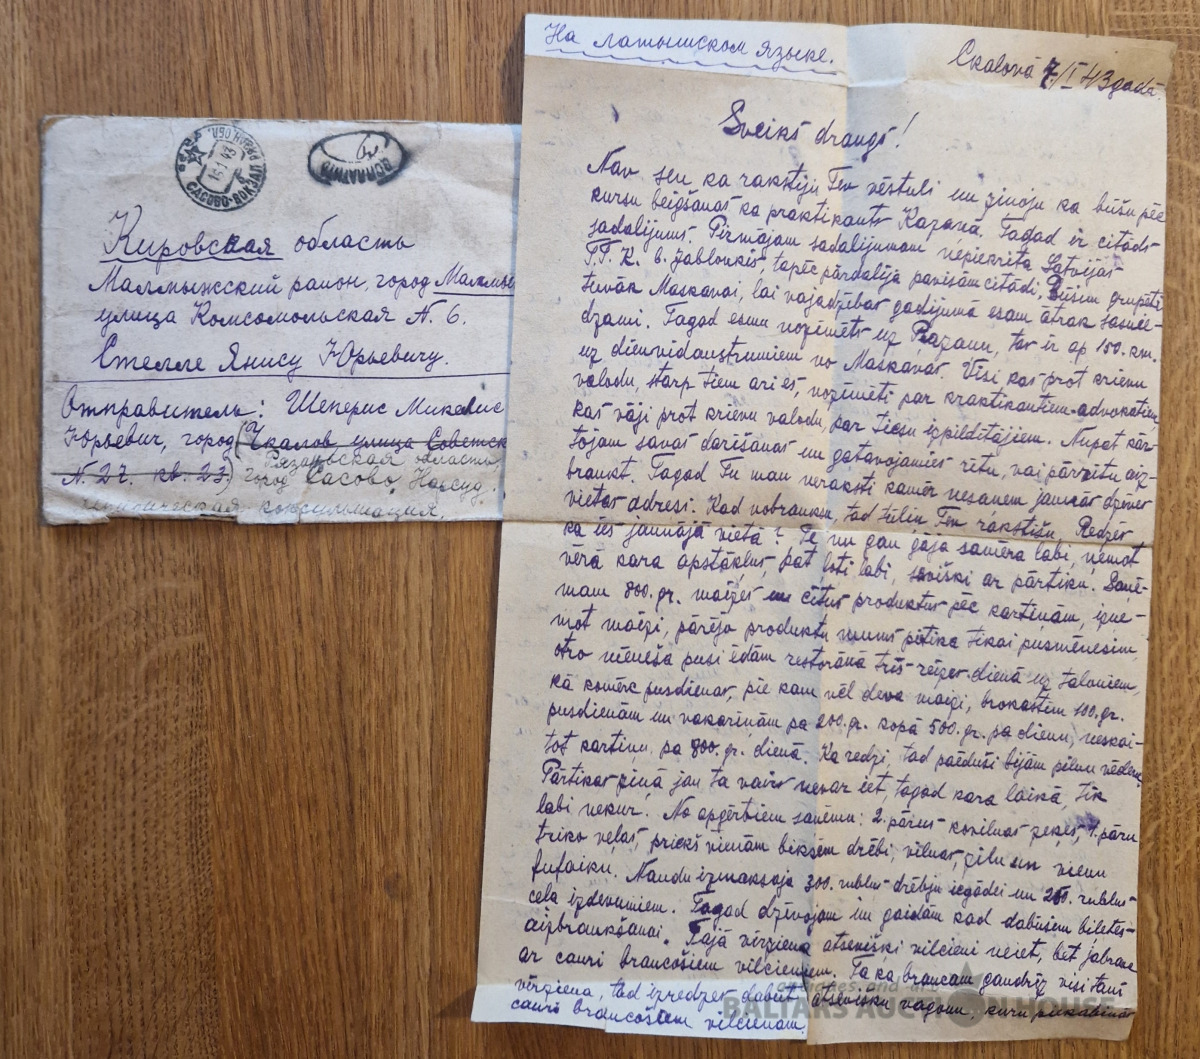 САСОВО-ВОКЗАЛ
15 1 43
ДОПЛАТИТЬ
Кировская область
Малмыжский район, город Малмы
улица Комсомольская N. 6.
Стелле Янису Юрьевичу.
Отправитель: Шеперис Микелис
Юрьевич, город (Чкалов улица Советск
N. 27. кв. 23.) Рязаньская область,
город Сасово, Нарсуд.
консультация.
На латышском языке.
Čkalovā 7/I 43 gadā.
Sveiks draugs!
Nav sen ka rakstīju Tev vēstuli un ziņoju ka būšu pēc
kursu beigšanas kā praktikants Kazaņā. Tagad ir citāds
sadalījums. Pirmajam sadalījumam nepiekrita Latvijas
T.T.K. b. Jablonkis, tapēc pārdalīja pavisam citādi. Būsim grupēti
tuvāk Maskavai, lai vajadzības gadījumā esam ātrāk sasnie-
dzami. Tagad esmu nozīmēts uz Rjazaņu, tas ir ap 150. km.
uz dienvidaustrumiem no Maskavas. Visi kas prot krievu
valodu, starp tiem arī es, nozīmēti par praktikantiem-advokātiem,
kas vāji prot krievu valodu, par tiesu izpildītājiem. Nupat kār-
tojam savas darīšanas un gatavojamies rītu, vai parītu aiz-
braukt. Tagad Tu man neraksti kamēr nesaņem jaunās dzīves
vietas adresi. Kad nobraukšu, tad tūliņ Tev rakstīšu. Redzēs
kā ies jaunajā vietā? Te nu gan gāja samērā labi, ņemot
vērā kara apstākļus, pat ļoti labi, sevišķi ar pārtiku. Saņē-
mam 800. gr. maizes un citus produktus pēc kartiņām, izņe-
mot maizi, pārējo produktu mums pietika tikai pusmēnesim,
otro mēneša pusi ēdām restorānā trīs-reizes dienā uz taloniem,
kā komerc pusdienas, pie kam vēl deva maizi, brokastīm 100. gr.
pusdienām un vakariņām pa 200. gr. kopā 500. gr. pa dienu, neskai-
tot kartiņu pa 800. gr. dienā. Kā redzi, tad paēduši bijām pilnu vēderu.
Pārtikas ziņā jau tā vairs nevar iet, tagad kara laikā, tik
labi nekur. No apģērbiem saņēmu: 2. pārus kokvilnas zeķes, 1. pāru
triko veļas, priekš vienām biksēm drēbi, vilnas, zilu un vienu
fufaiku. Naudu izmaksāja 300. rubļus drēbju iegādei un 250. rubļus
ceļa izdevumiem. Tagad dzīvojam un gaidām kad dabūsim biļetes
aizbraukšanai. Tajā virzienā atsevišķi vilcieni neiet, bet jābrauc
ar cauri braucošiem vilcieniem. Tā kā braucam gandrīz visi tanī
virzienā, tad izredzes dabūt atsevišķu vagonu, kuru piekabinās
cauri braucošiem vilcienam.
BALTARS AUCTION HOUSE